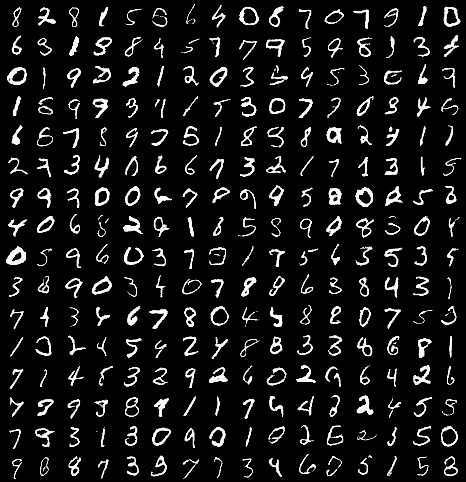 8 2 8 1 5 8 6 4 0 8 7 0 7 9 1 0
6 3 1 9 8 4 5 7 7 9 5 9 8 1 3 4
0 1 9 2 2 1 2 0 3 5 9 5 3 0 6 9
1 5 9 9 3 7 1 5 3 0 7 7 0 3 4 6
6 5 7 8 9 7 5 1 8 9 8 0 2 9 1 1
2 7 3 4 0 6 6 7 3 2 1 7 1 3 1 5
9 9 3 0 0 6 7 8 9 9 5 8 0 2 5 8
4 0 6 8 2 9 1 8 5 8 9 0 8 3 0 8
0 5 9 6 0 3 7 0 1 7 5 6 3 5 3 5
3 8 9 0 3 4 0 7 8 8 6 3 8 4 3 1
7 1 3 4 6 7 8 0 4 5 8 2 0 7 5 3
1 2 2 4 5 9 2 4 8 8 3 3 8 6 8 1
7 1 4 8 3 2 9 2 6 0 2 9 6 4 2 6
7 8 9 9 8 9 1 1 7 4 4 3 2 4 5 9
7 9 3 1 3 0 9 0 1 0 2 6 2 3 5 0
9 8 8 7 3 9 7 7 3 4 6 0 5 1 5 8